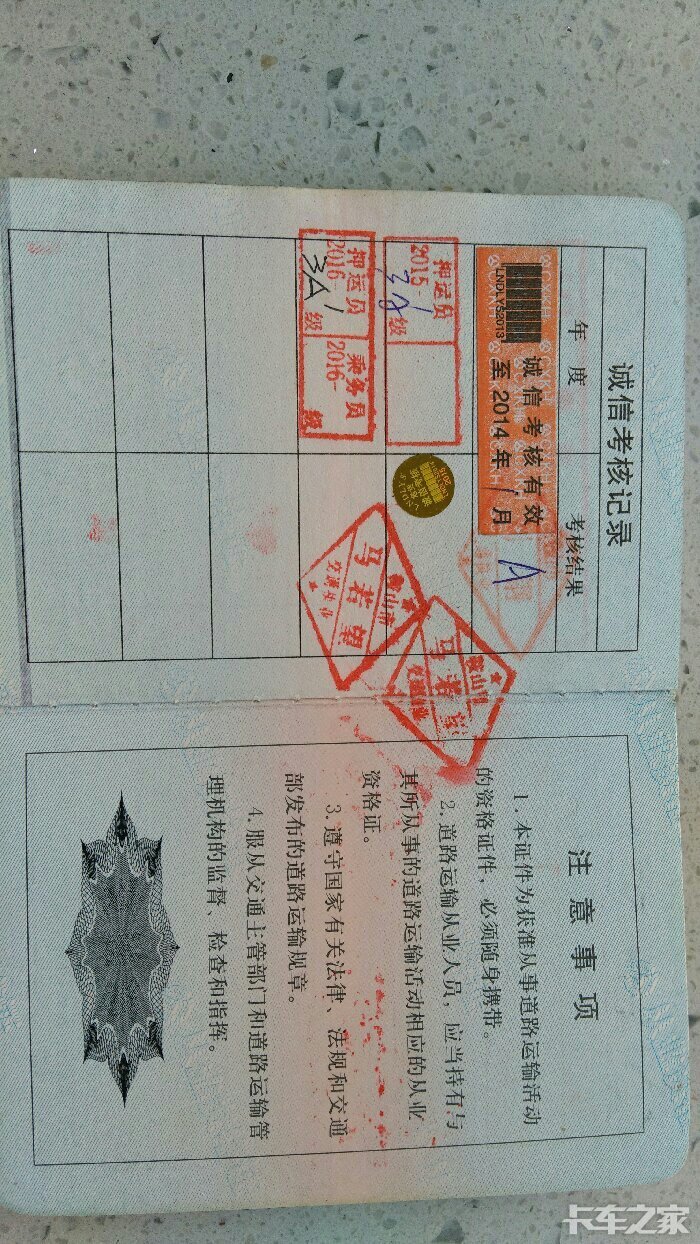 诚信考核记录
年度
考核结果
诚信考核有效
至2014年1月
LNDLYS2013
A
押运员
2015-1
3A级
押运员
2016-1
3A级
乘务员
2016-
级
鞍山市
马若望
交通处
鞍山市
马若
注意事项
1.本证件为获准从事道路运输活动
的资格证件，必须随身携带。
2.道路运输从业人员，应当持有与
其所从事的道路运输活动相应的从业
资格证。
3.遵守国家有关法律、法规和交通
部发布的道路运输规章。
4.服从交通主管部门和道路运输管
理机构的监督、检查和指挥。
卡车之家